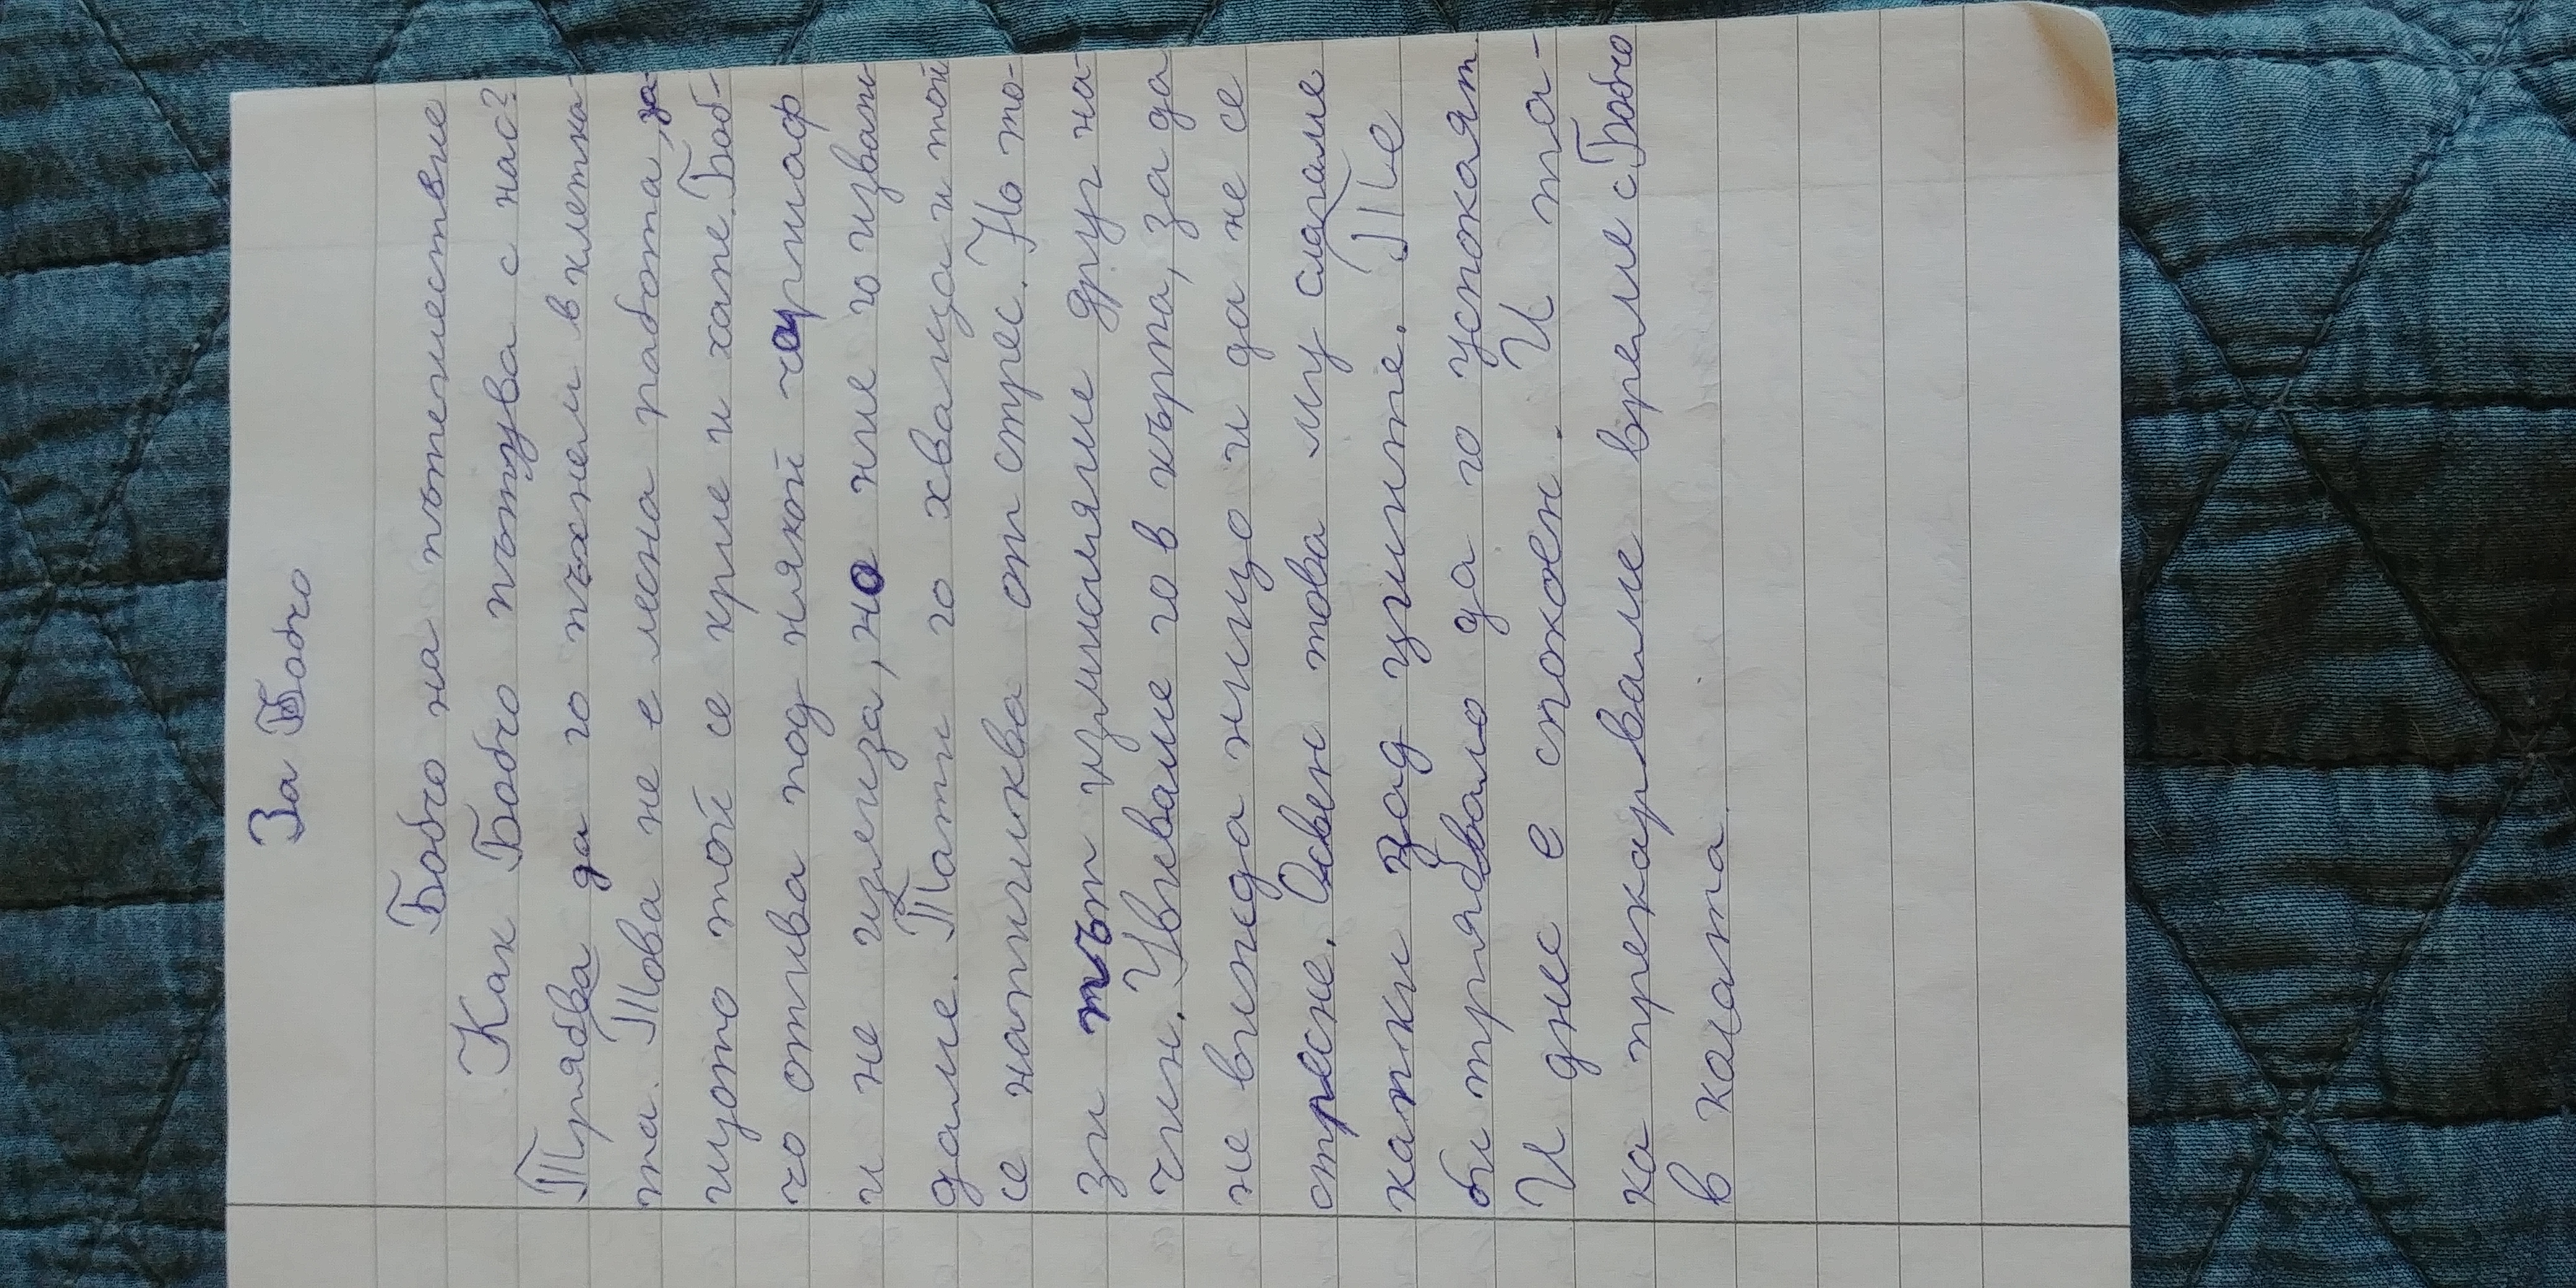 За Бобчо
Бобчо на пътешествие
Как Бобчо пътува с нас?
Трябва да го пъхнем в клетка-
та. Това не е лесна работа, за-
щото той се крие и хапе. Боб-
чо отива под някой чаршаф
и не излиза, но ние го изваж-
даме. Тати го хваща и той
се напишква от стрес. Но то-
зи път измислихме друг на-
чин. Увиваме го в кърпа, за да
не вижда нищо и да не се
стресне. Освен това му слагаме
капки зад ушите. Те
би трябвало да го успокоят.
И днес е спокоен. И та-
ка прекарваме време с Бобчо
в колата.